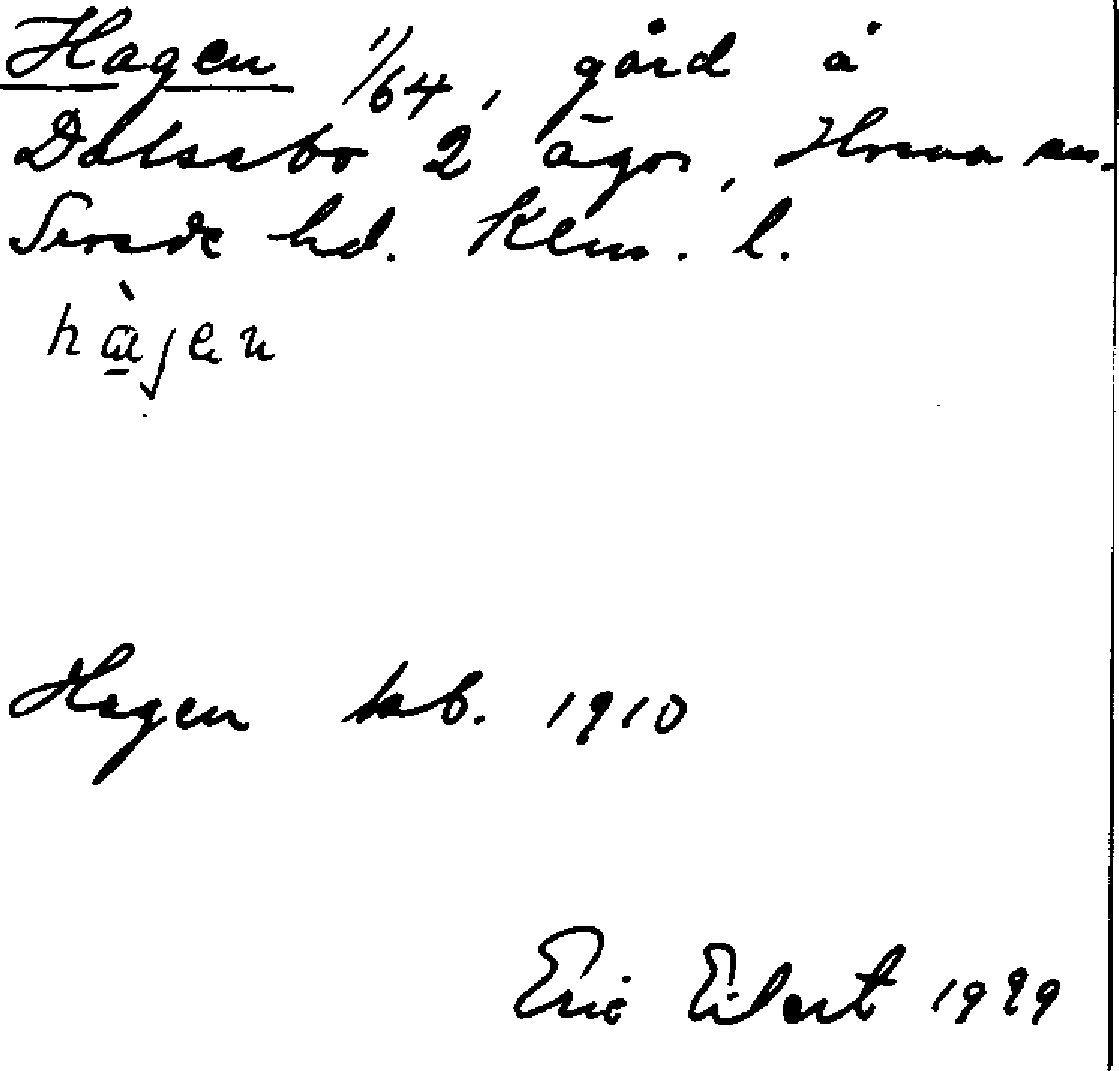 Hagen 1/64, gård å
Dalsebo 2 ägor, Horna sn.
Sevede hd. Klm. l.
hàgen
Hagen kab. 1910
Eric Eilert 1929